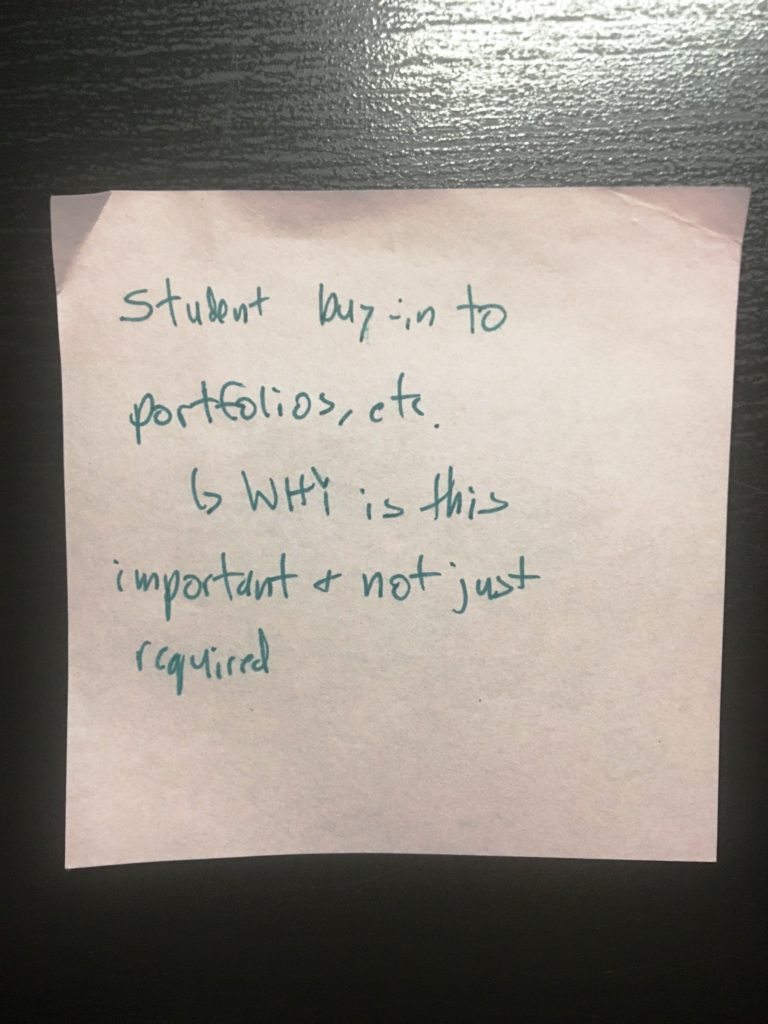 Student buy-in to
portfolios, etc.
↳ WHY is this
important & not just
required